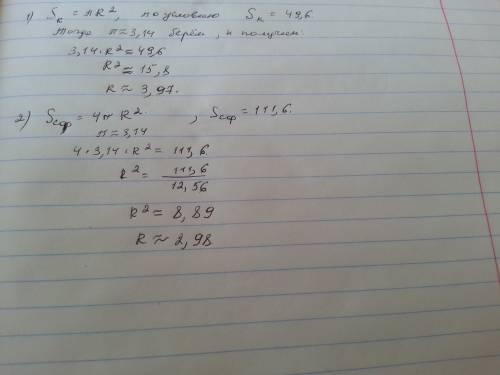 1) Sк = πR², по условию Sк = 49,6.
Тогда π≈3,14 берём, и получаем:
3,14·R²=49,6
R²≈15,8
R≈3,97.
2) Sсф = 4πR², Sсф = 111,6.
π=3,14
4·3,14·R²=111,6.
R²= 111,6/12,56
R²=8,89
R≈2,98